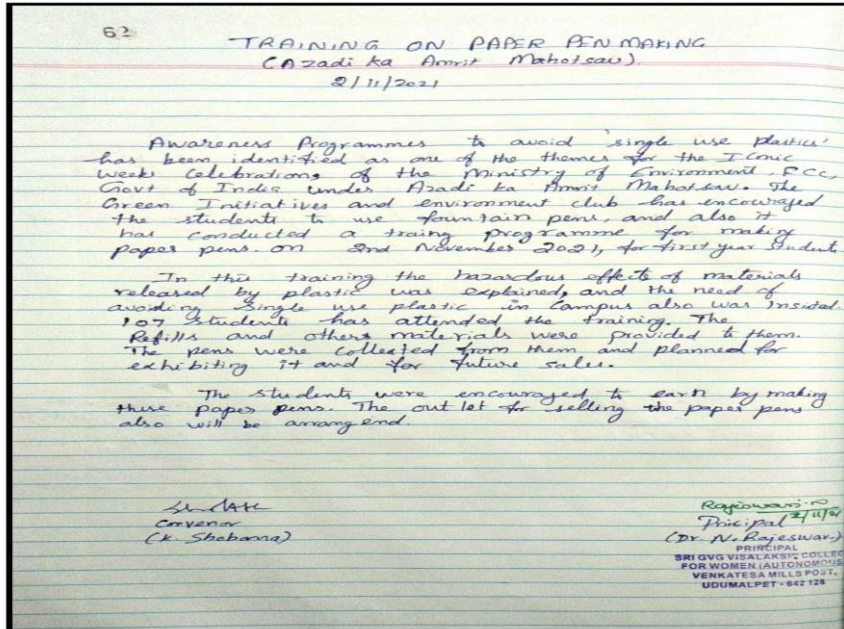 62
TRAINING ON PAPER PEN MAKING
(Azadi ka Amrit Mahotsav)
2/11/2021
Awareness Programmes to avoid 'single use plastics'
has been identified as one of the themes for the Iconic
week celebrations of the Ministry of Environment, FCC,
Govt of India under Azadi ka Amrit Mahotsav. The
Green Initiatives and environment club has encouraged
the students to use fountain pens, and also it
has conducted a traing programme for making
paper pens. on 2nd November 2021, for first year students
In this training the hazardous effects of materials
released by plastic was explained, and the need of
avoiding single use plastic in campus also was insisted.
107 students has attended the training. The
Refills and others materials were provided to them.
The pens were collected from them and planned for
exhibiting it and for future sales.
The students were encouraged to earn by making
these paper pens. The out let for selling the paper pens
also will be arrangend.
Convenor
(K. Shobana)
Rajeswari.N
2/11/21
Principal
(Dr. N. Rajeswari)
PRINCIPAL
SRI GVG VISALAKSHI COLLEG
FOR WOMEN (AUTONOMOUS
VENKATESA MILLS POST,
UDUMALPET - 642 128